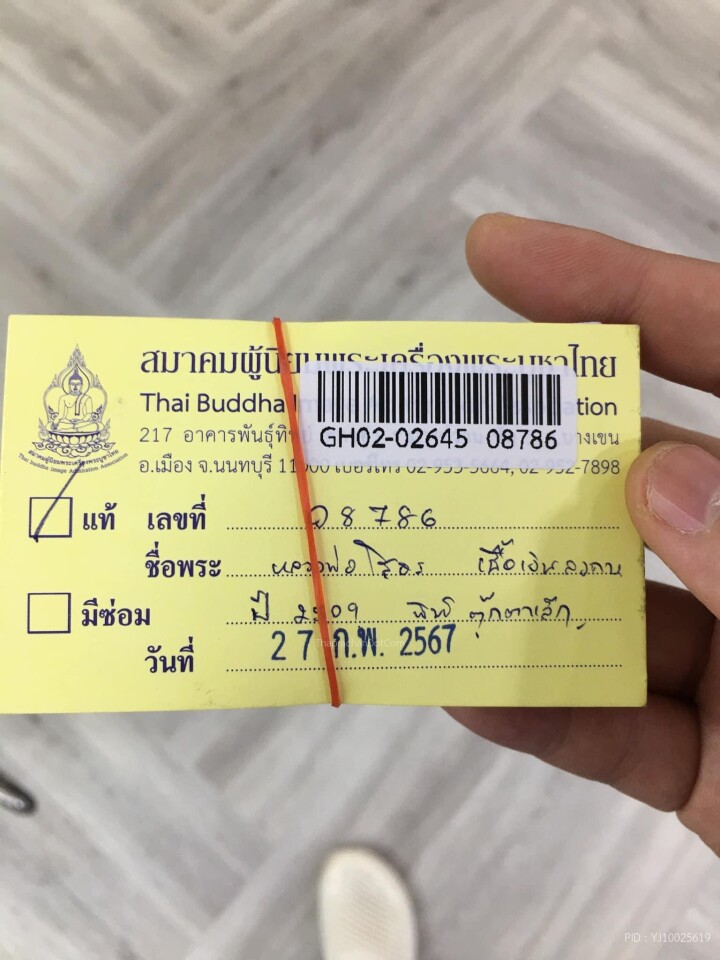 สมาคมผู้นิยมพระเครื่องพระบูชาไทย
Thai Buddha Image Admiration Association
217 อาคารพันธุ์ทิพย์ บางเขน
อ.เมือง จ.นนทบุรี 11000 เบอร์โทร 02-953-5664, 02-952-7898
GH02-02645 08786
สมาคมผู้นิยมพระเครื่องพระบูชาไทย
Thai Buddha Image Admiration Association
แท้ เลขที่ 08786
ชื่อพระ หลวงพ่อโสธร เนื้อเงินลงถม
มีซ่อม ปี 2509 พิมพ์ ตุ๊กตาเล็ก
วันที่ 27 ก.พ. 2567
PID : YJ10025619